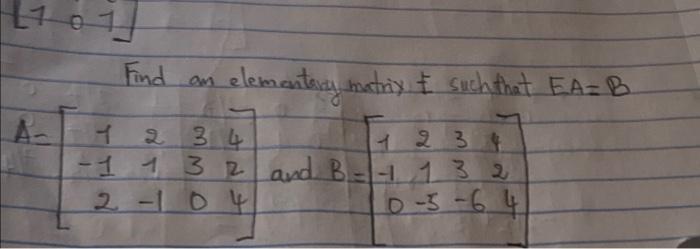 [1 0 1]
Find an elementary matrix E such that EA = B
A= [ 1 2 3 4
-1 1 3 2
2 -1 0 4 ] and B = [ 1 2 3 4
-1 1 3 2
0 -5 -6 4 ]